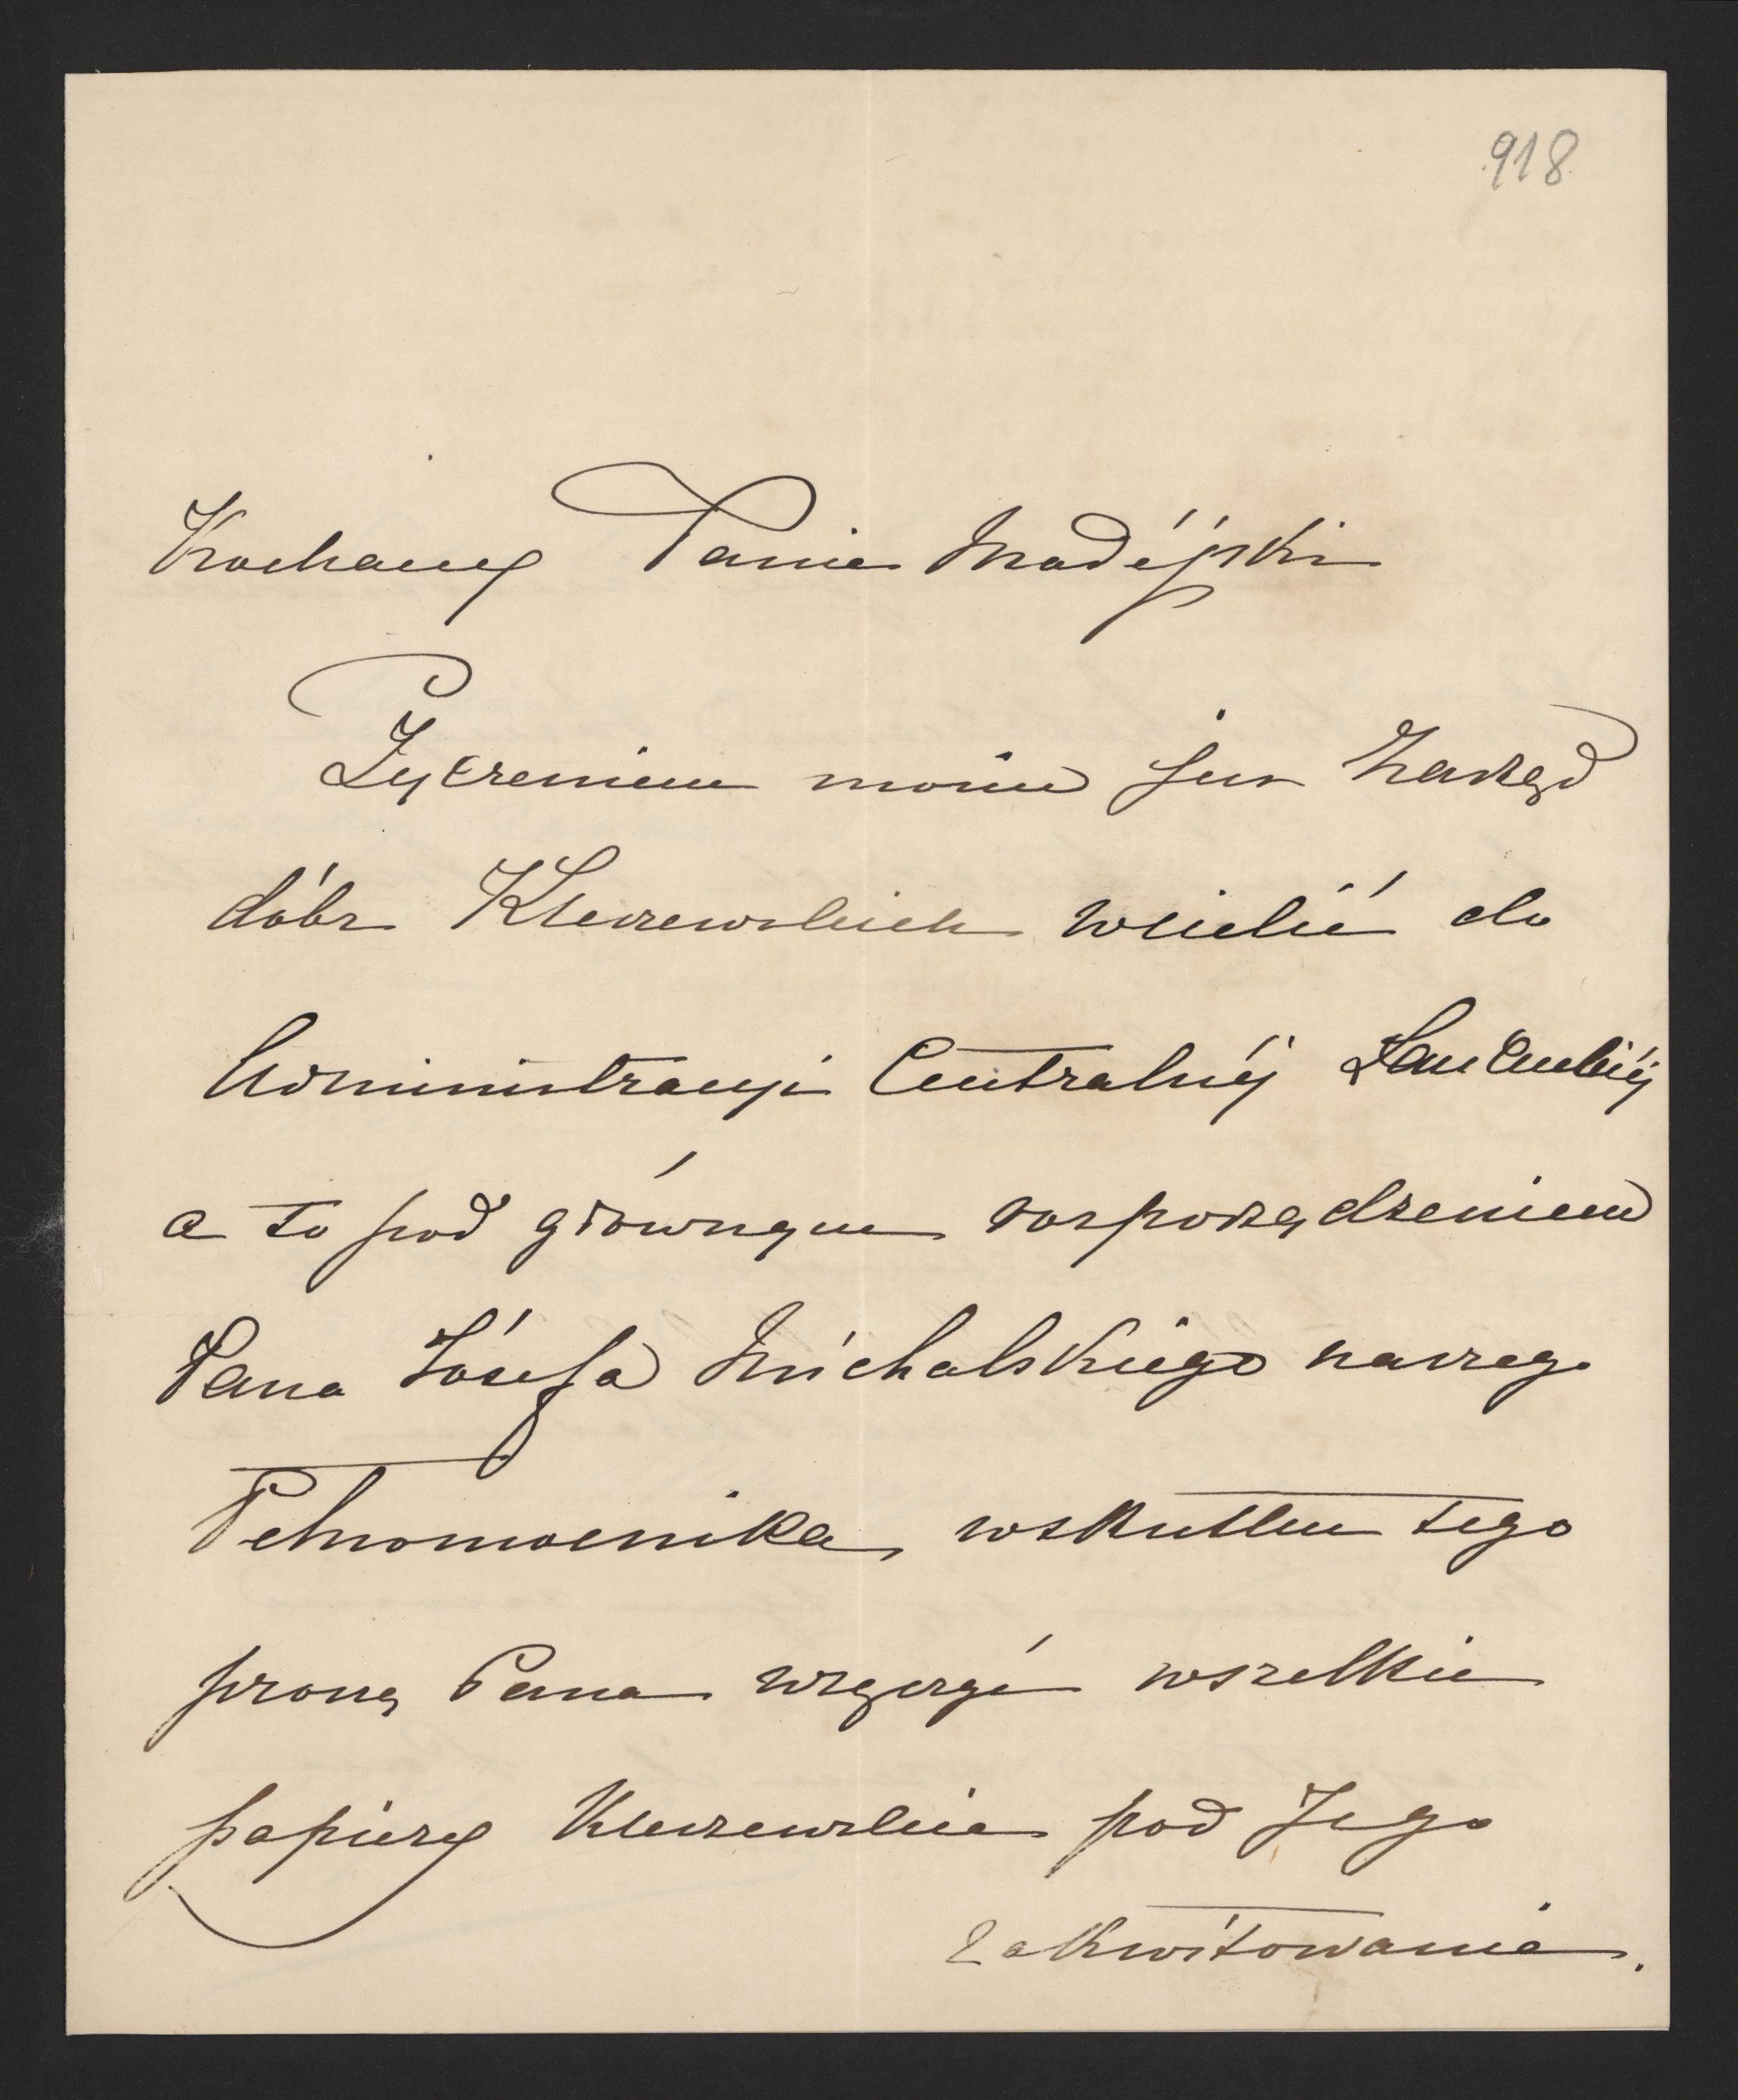 918
Kochany Panie Madéjski
Życzeniem moim jest Zarząd
dóbr Kleczewskich wcielić do
Administracyi Centralnéj Łańcuckiéj
a to pod głównym rozporządzeniem
Pana Józefa Michalskiego naszego
Pełnomocnika, wskutku tego
proszę Pana wręczyć wszelkie
papiery Kleczewskie pod Jego
zakwitowanie.